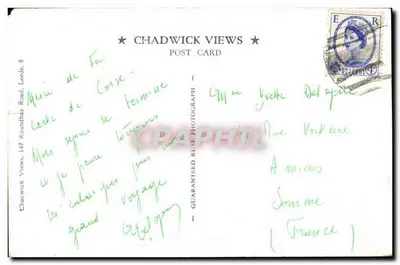 ★ CHADWICK VIEWS ★
POST CARD
E R
Chadwick Views, 147 Roundhay Road, Leeds, 8
GUARANTEED REAL PHOTOGRAPH
Merci de Ta
Carte de Corse.
Mon séjour se termine
et je pense toujours
grand voyage
Yvette
Rue Voltaire
Amiens
Somme
(France)
CPAPHIL